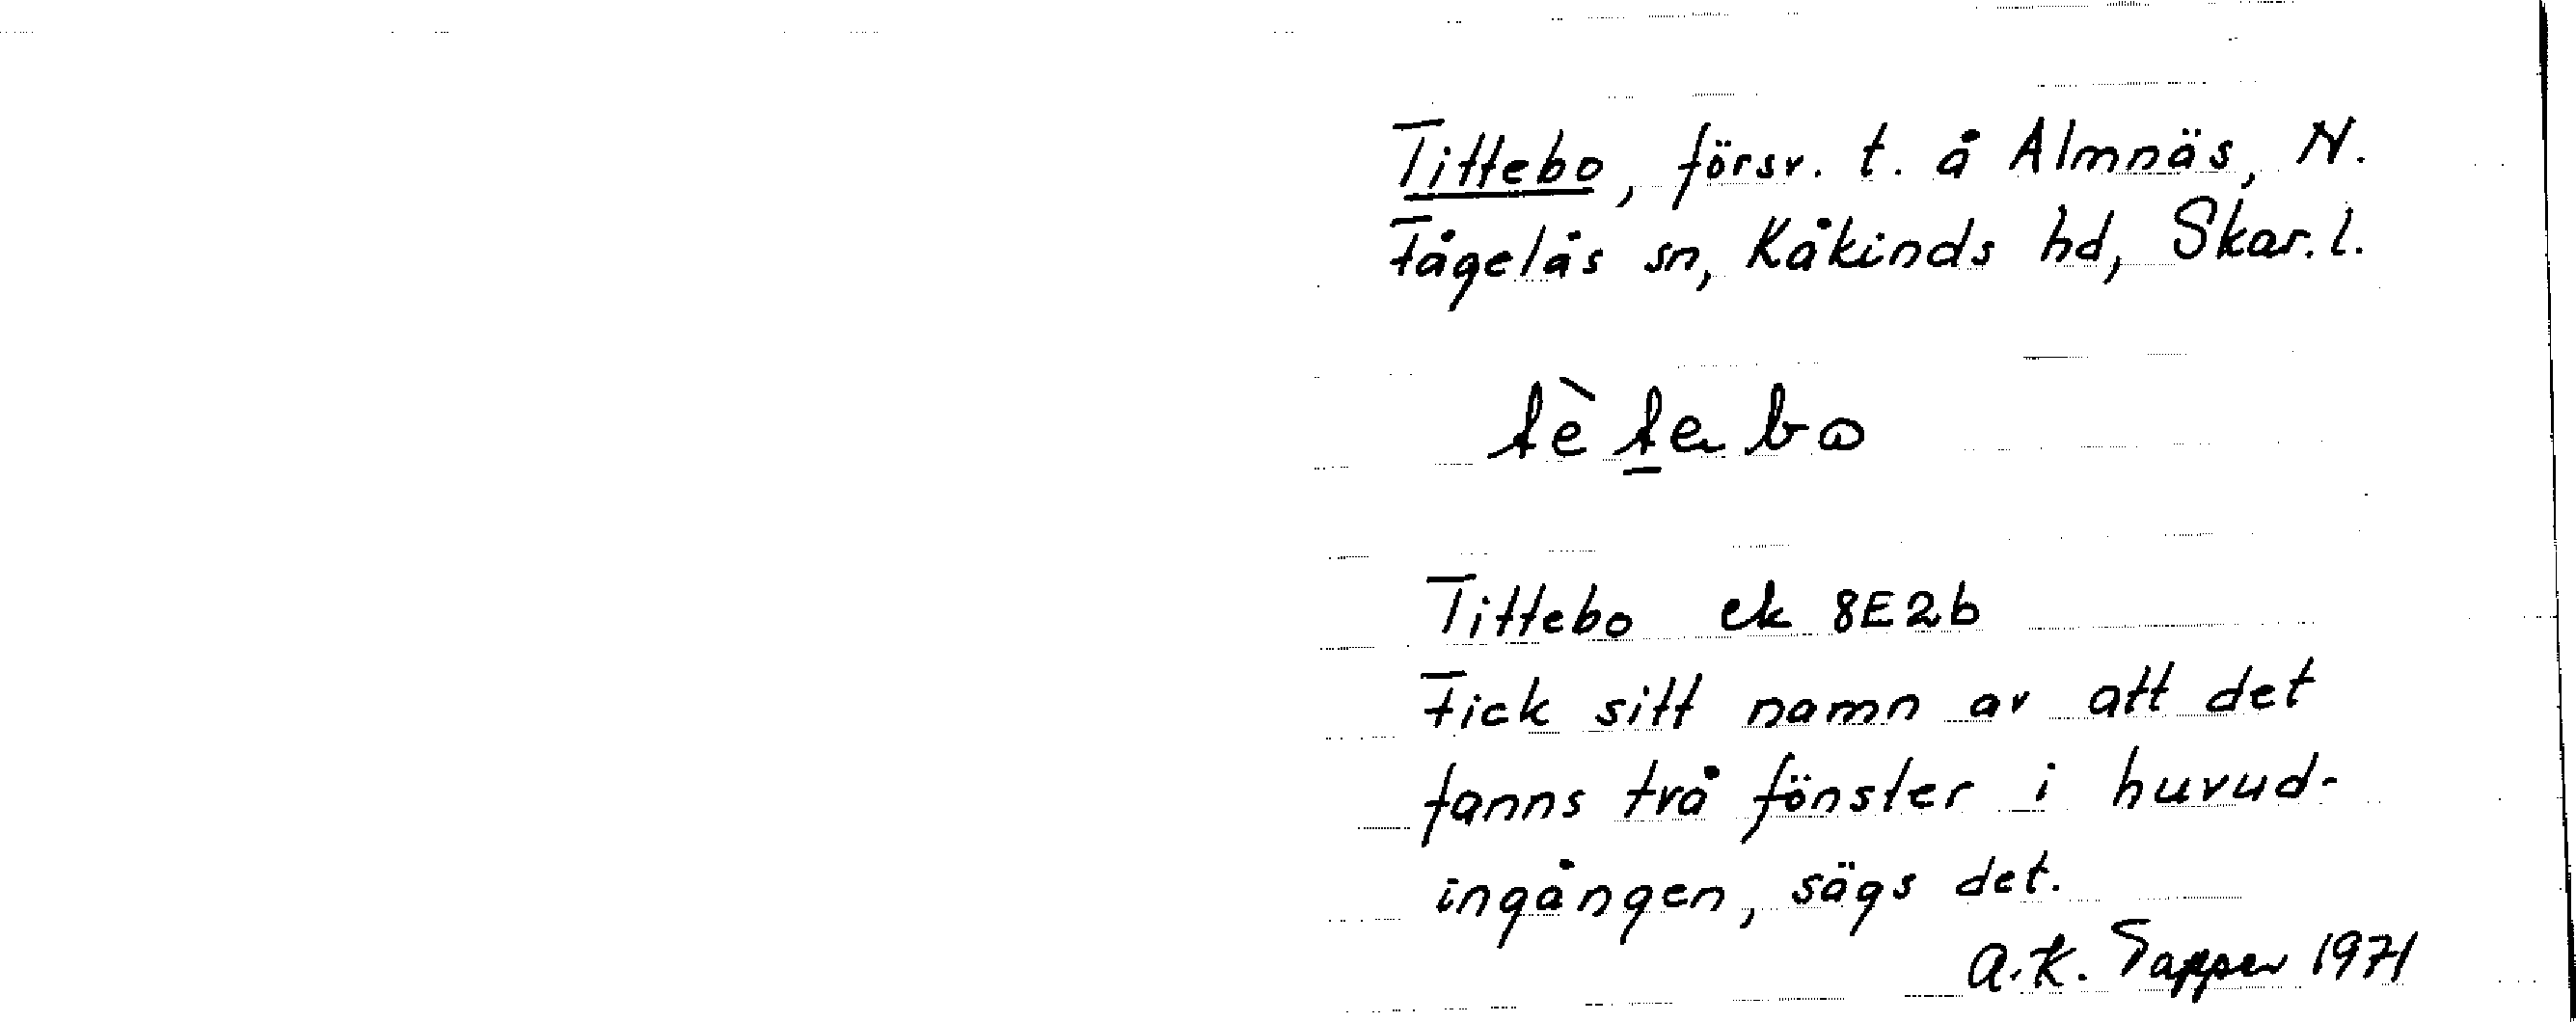 Tittebo, försv. t. å Almnäs, N.
Fågelås sn, Kåkinds hd, Skar. l.
tè te bo
Tittebo ek 8E2b
Fick sitt namn av att det
fanns två fönster i huvud-
ingången, sägs det.
A.K. Tapper 1971